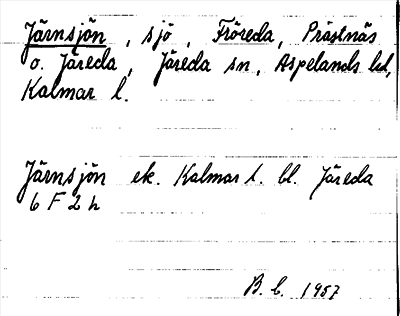 Järnsjön, sjö, Fröreda, Prästnäs
o. Järeda, Järeda sn, Aspelands hd,
Kalmar l.
Järnsjön ek. Kalmar l. bl. Järeda
6 F 2 h
B. C. 1957